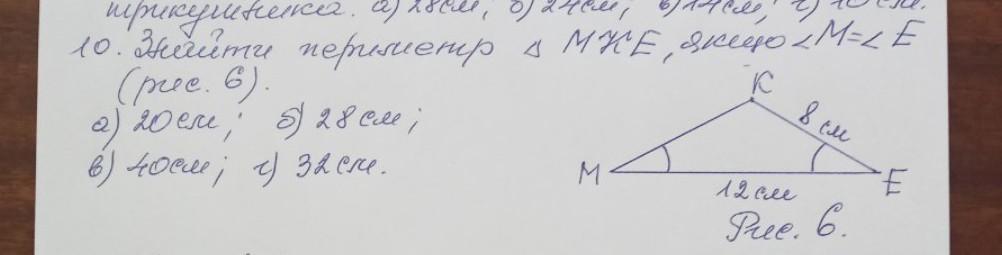 трикутника. а) 28см; б) 24см; в) 14см; г) 10см.
10. Знайти периметр Δ МКЕ, якщо ∠М=∠Е
(рис. 6).
а) 20см; б) 28см;
в) 40см; г) 32см.
К
8 см
М
12см
Е
Рис. 6.